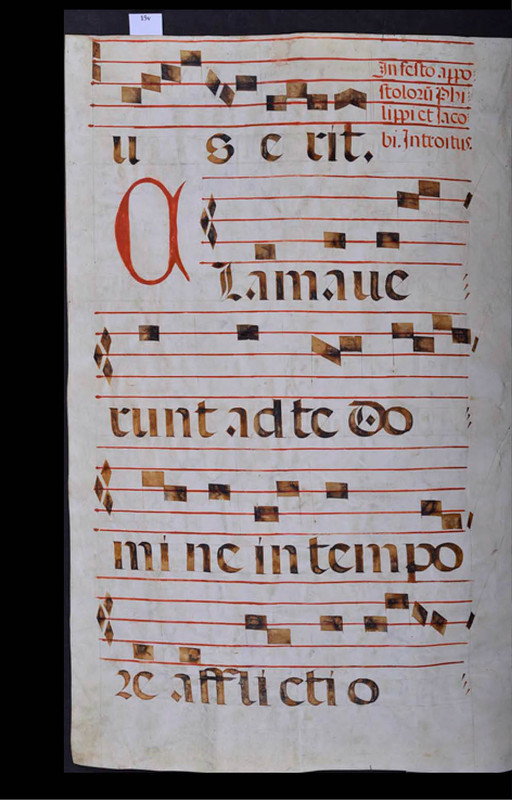 15v
u s e rit.
In festo appo
stolorũ Phi
lippi et Jaco
bi. Introitus.
CLamaue
runt ad te Do
mi ne in tempo
re afflicti o